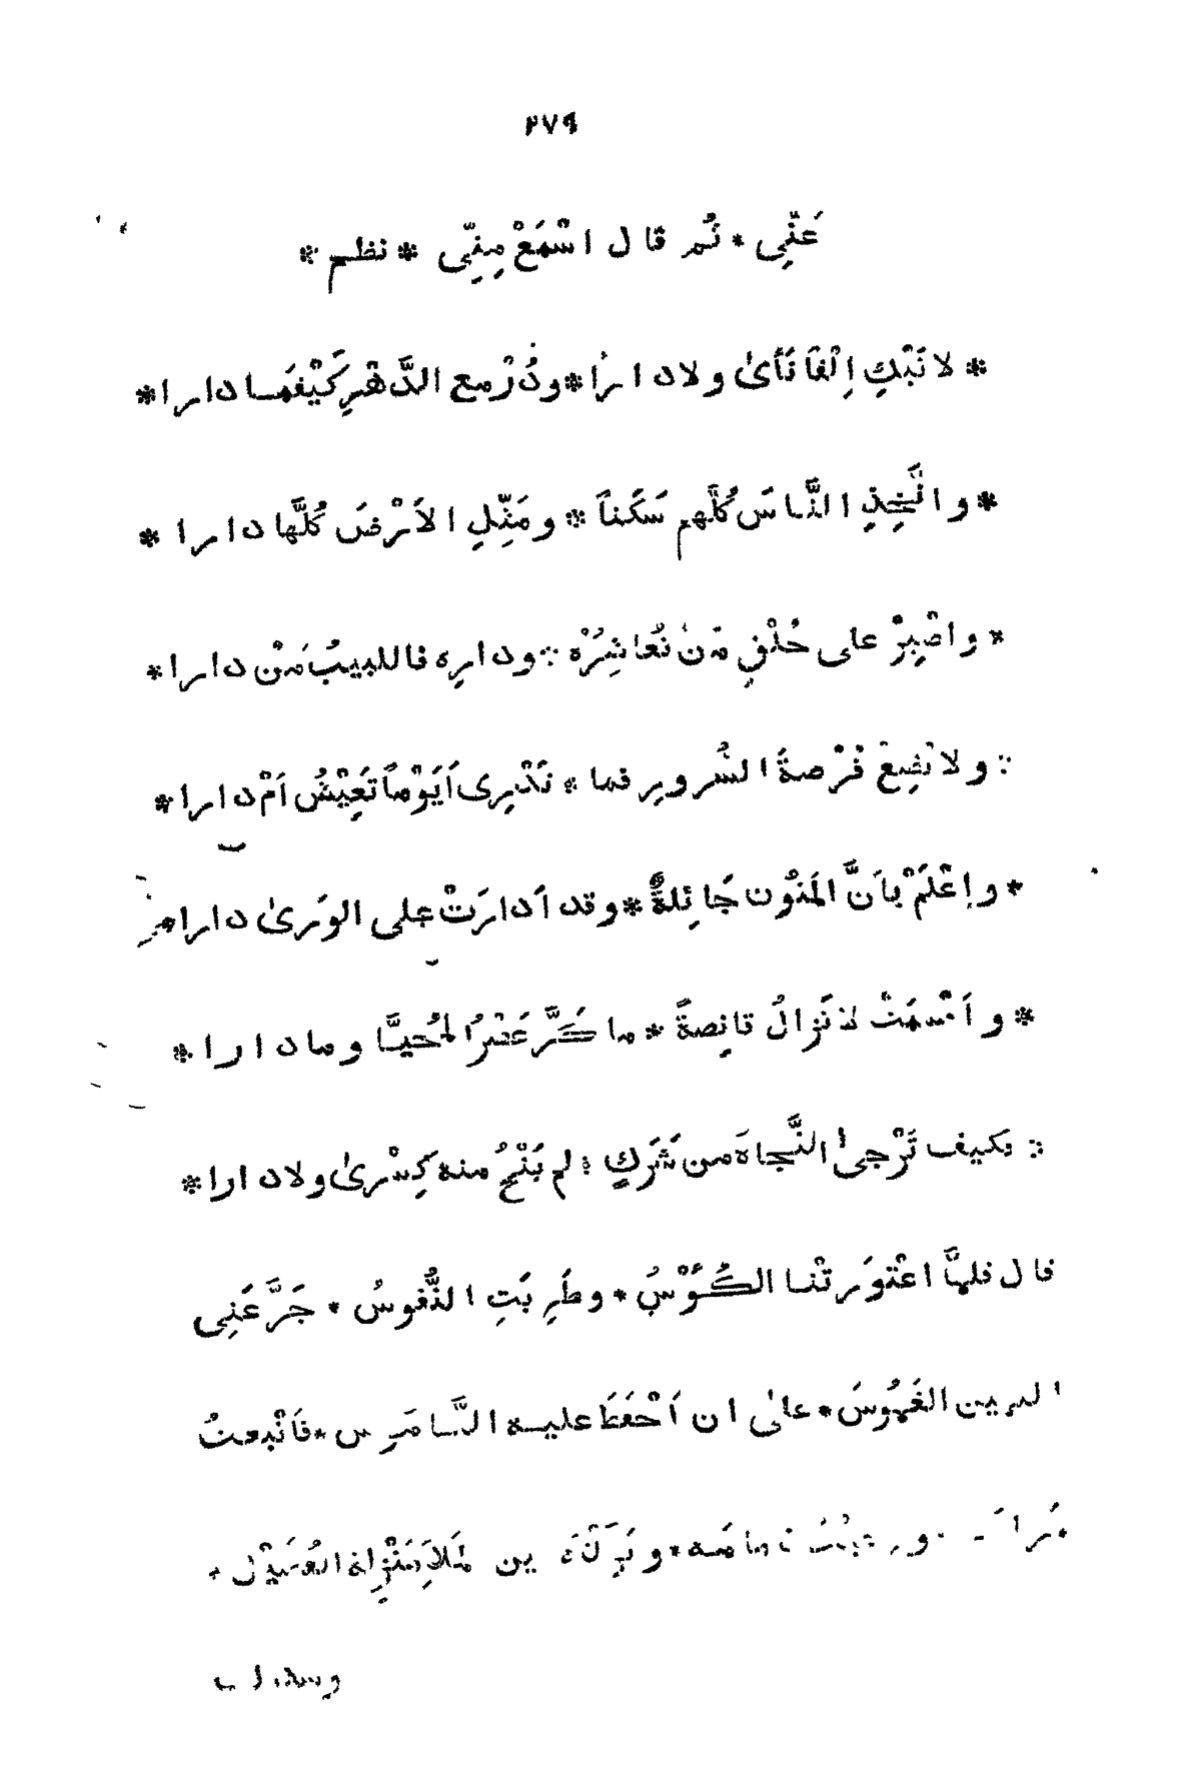 ٢٧٩
عَنِّي * ثُم قال اسْمَعْ مِنِّي * نظم *
* لا تَبْكِ اِلْفًا نَأىٰ ولا دارًا * ودُرْ مع الدَّهْرِ كَيْفَما دارا *
* واتَّخِذِ النَّاسَ كُلَّهم سَكَناً * ومَثِّلِ الاَرْضَ كُلَّها دارا *
* واصْبِرْ على خُلْقِ مَنْ تُعاشِرُهْ * ودارِه فاللبيبُ مَنْ دارا *
* ولا تُضِعْ فُرْصةَ السُّرورِ فما * تَدْرِى اَيَوْماً تَعِيْشُ اَمْ دارا *
* واعْلَمْ باَنَّ المَنُوْن جَائِلةٌ * وقد اَدارَتْ على الوَرىٰ دارا *
* واَقْسَمَتْ لا تَزالُ قانِصةً * ما كَرَّ عَصْرُ المُحيَّا وما دارا *
* فكيف تَرْجىٰ النَّجاةَ من شَرَكٍ * لم يَنْجُ منه كِسْرىٰ ولا دارا *
قال فلمَّا اعْتوَرتْنا الكُؤُوْسُ * وطَرِبَتِ النُّفوسُ * جَرَّعَنِى
اليمين الغَمُوْسَ * علىٰ ان اَحْفَظَ عليه النَّامُوس * فاَتْبعتُ
مَرا ورعيْتُ ذمامَه * ونَزَّلْتُه بين المَلاَ مَنْزِلةَ الفُضَيْل *
وسدلت